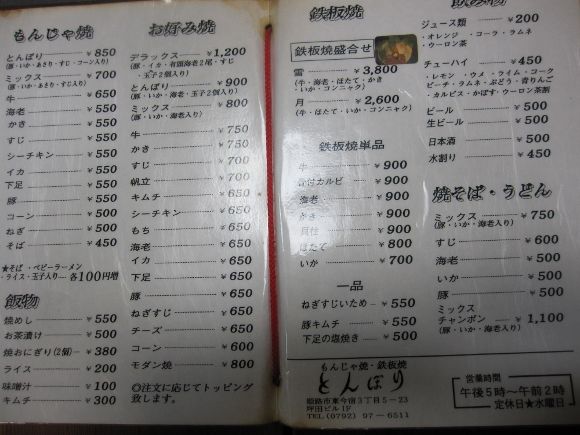 もんじゃ焼
とんぼり ¥850
(豚・いか・あさり・すじ・コーン入り)
ミックス ¥700
(豚・いか・あさり・すじ入り)
牛 ¥650
海老 ¥550
かき ¥550
すじ ¥550
シーチキン ¥550
イカ ¥550
下足 ¥550
豚 ¥550
コーン ¥500
ねぎ ¥500
そば ¥450
★そば・ベビーラーメン
・ライス・玉子入り― 各100円増
飯物
焼めし ¥550
お茶漬け ¥500
焼おにぎり(2個) ¥380
ライス ¥200
味噌汁 ¥100
キムチ ¥300
お好み焼
デラックス ¥1,200
(豚・いか・有頭海老2尾・すじ
・玉子2個入り)
とんぼり ¥900
(豚・いか・海老・玉子2個入り)
ミックス ¥800
(豚・いか・海老入り)
牛 ¥750
かき ¥750
すじ ¥700
帆立 ¥700
キムチ ¥650
シーチキン ¥650
もち ¥650
海老 ¥650
イカ ¥650
下足 ¥650
豚 ¥650
ねぎすじ ¥650
チーズ ¥650
コーン ¥600
モダン焼 ¥800
◎注文に応じてトッピング
致します。
鉄板焼
鉄板焼盛合せ
雪 ¥3,800
(牛・海老・ほたて・かき
・いか・コンニャク)
月 ¥2,600
(牛・ほたて・いか・コンニャク)
鉄板焼単品
牛 ¥900
骨付カルビ ¥900
海老 ¥900
かき ¥900
貝柱 ¥900
ほたて ¥800
いか ¥700
一品
ねぎすじいため ¥550
豚キムチ ¥550
下足の塩焼き ¥550
もんじゃ焼・鉄板焼
とんぼり
姫路市東今宿3丁目5-23
坪田ビル1F
TEL(0792)97-6511
飲み物
ジュース類 ¥200
・オレンジ ・コーラ・ラムネ
・ウーロン茶
チューハイ ¥450
・レモン ・ウメ・ライム・コーク
ピーチ・ラムネ・ぶどう・青りんご
・カルピス・かぼす・ウーロン茶割
ビール ¥500
生ビール ¥500
日本酒 ¥500
水割り ¥450
焼そば・うどん
ミックス ¥750
(豚・いか・海老入り)
すじ ¥600
海老 ¥500
いか ¥500
豚 ¥500
ミックス
チャンポン ¥1,100
(豚・いか・海老入り)
営業時間
午後5時～午前2時
定休日★水曜日